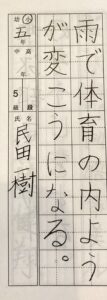 雨で体育の内よう
が変こうになる。
幼・小・中・高
五年
5級
氏名
民田樹